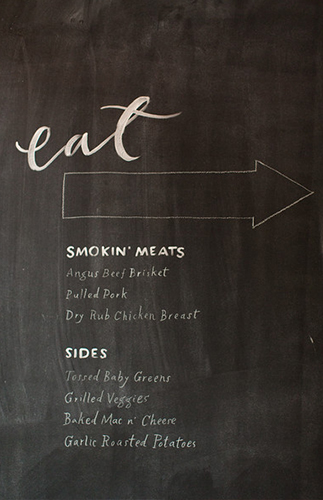 eat
SMOKIN' MEATS
Angus Beef Brisket
Pulled Pork
Dry Rub Chicken Breast
SIDES
Tossed Baby Greens
Grilled Veggies
Baked Mac n' Cheese
Garlic Roasted Potatoes